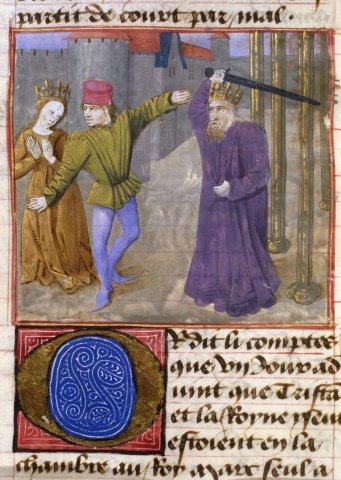 partit de court par mal.
OR dit li comptes
que vn Jour ad
uint que Trista
et la Royne yseu
estoient en la
chambre au Roy marc seul a